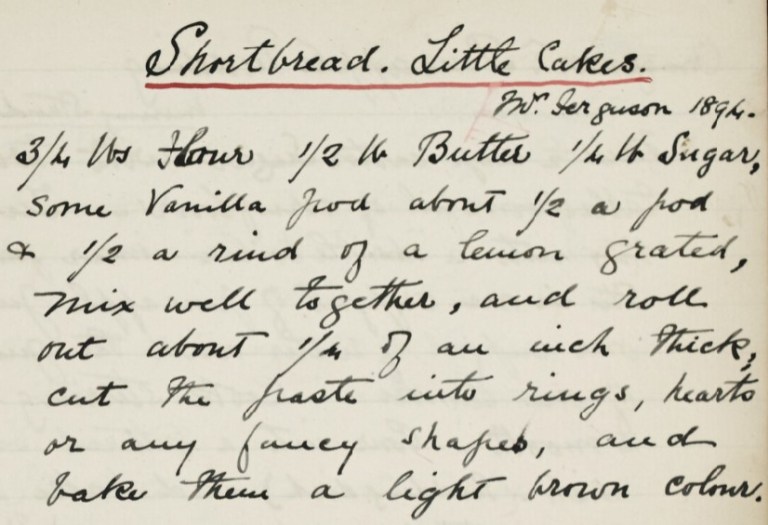 Shortbread. Little Cakes.
Mr. Ferguson 1894.
3/4 lbs Flour 1/2 lb Butter 1/4 lb Sugar,
Some Vanilla pod about 1/2 a pod
& 1/2 a rind of a lemon grated,
Mix well together, and roll
out about 1/4 of an inch thick,
cut the paste into rings, hearts
or any fancy shapes, and
bake them a light brown colour.